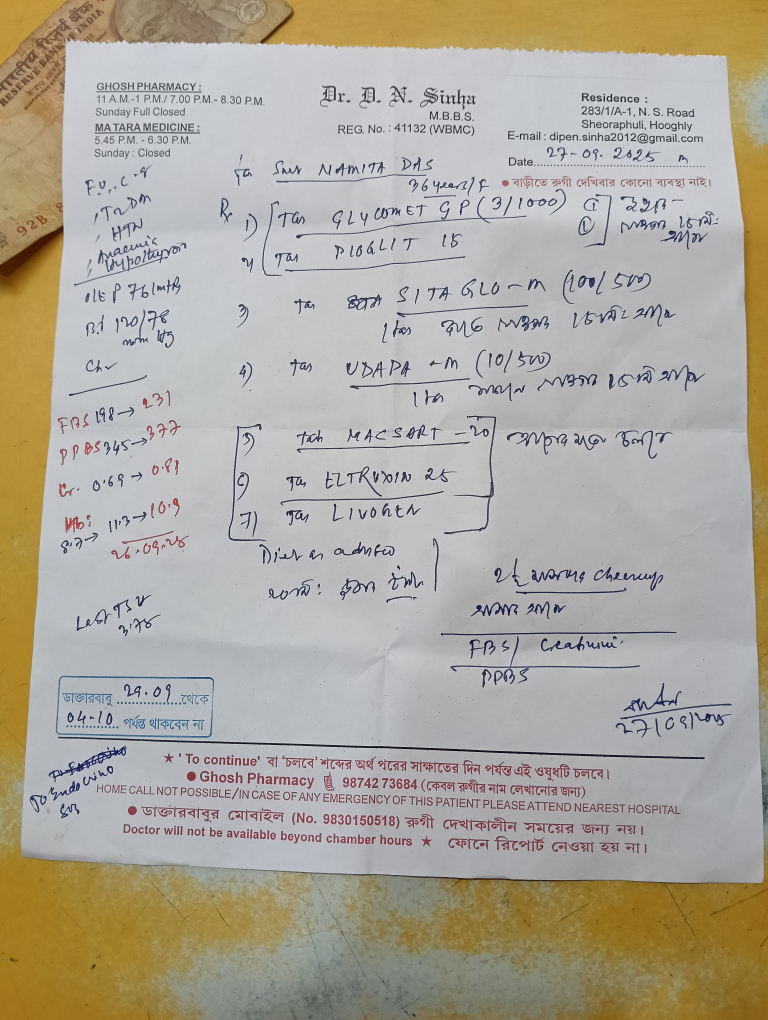 भारतीय रिज़र्व बैंक
RESERVE BANK OF INDIA
92B
GHOSH PHARMACY :
11 A.M.-1 P.M./ 7.00 P.M.- 8.30 P.M.
Sunday Full Closed
MA TARA MEDICINE :
5.45 P.M. - 6.30 P.M.
Sunday : Closed
Dr. D. N. Sinha
M.B.B.S.
REG. No. : 41132 (WBMC)
Residence :
283/1/A-1, N. S. Road
Sheoraphuli, Hooghly
E-mail : dipen.sinha2012@gmail.com
Date 27-09-2025
● বাড়ীতে রুগী দেখিবার কোনো ব্যবস্থা নাই।
Smt NAMITA DAS
36 years/F
T2DM
HTN
Anaemia
Hypothyroid
O/E P 76/mth
120/78
mm Hg
FBS 198→ 231
PPBS 345→ 377
Cr. 0.69→ 0.81
Hb: 8.7→ 11.3→ 10.9
26.09.25
Last TSH
3.78
Rx
1) Tab GLYCOMET GP (3/1000)
2) Tab PIOGLIT 15
3) Tab SITAGLO-M (100/500)
1 tab
4) Tab UDAPA-M (10/500)
1 tab
5) Tab MACSART-20
6) Tab ELTROXIN 25
7) Tab LIVOGEN
Diet as advised
checkup
FBS/ Creatinine
PPBS
27/09/2025
ডাক্তারবাবু 29.09 থেকে
04-10 পর্যন্ত থাকবেন না
To Endocrino
★ 'To continue' বা 'চলবে' শব্দের অর্থ পরের সাক্ষাতের দিন পর্যন্ত এই ওষুধটি চলবে।
● Ghosh Pharmacy 98742 73684 (কেবল রুগীর নাম লেখানোর জন্য)
HOME CALL NOT POSSIBLE/IN CASE OF ANY EMERGENCY OF THIS PATIENT PLEASE ATTEND NEAREST HOSPITAL
● ডাক্তারবাবুর মোবাইল (No. 9830150518) রুগী দেখাকালীন সময়ের জন্য নয়।
Doctor will not be available beyond chamber hours ★ ফোনে রিপোর্ট নেওয়া হয় না।